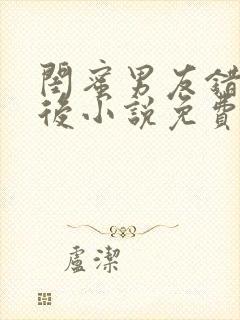 閨蜜男友錯
後小說免費
盧潔